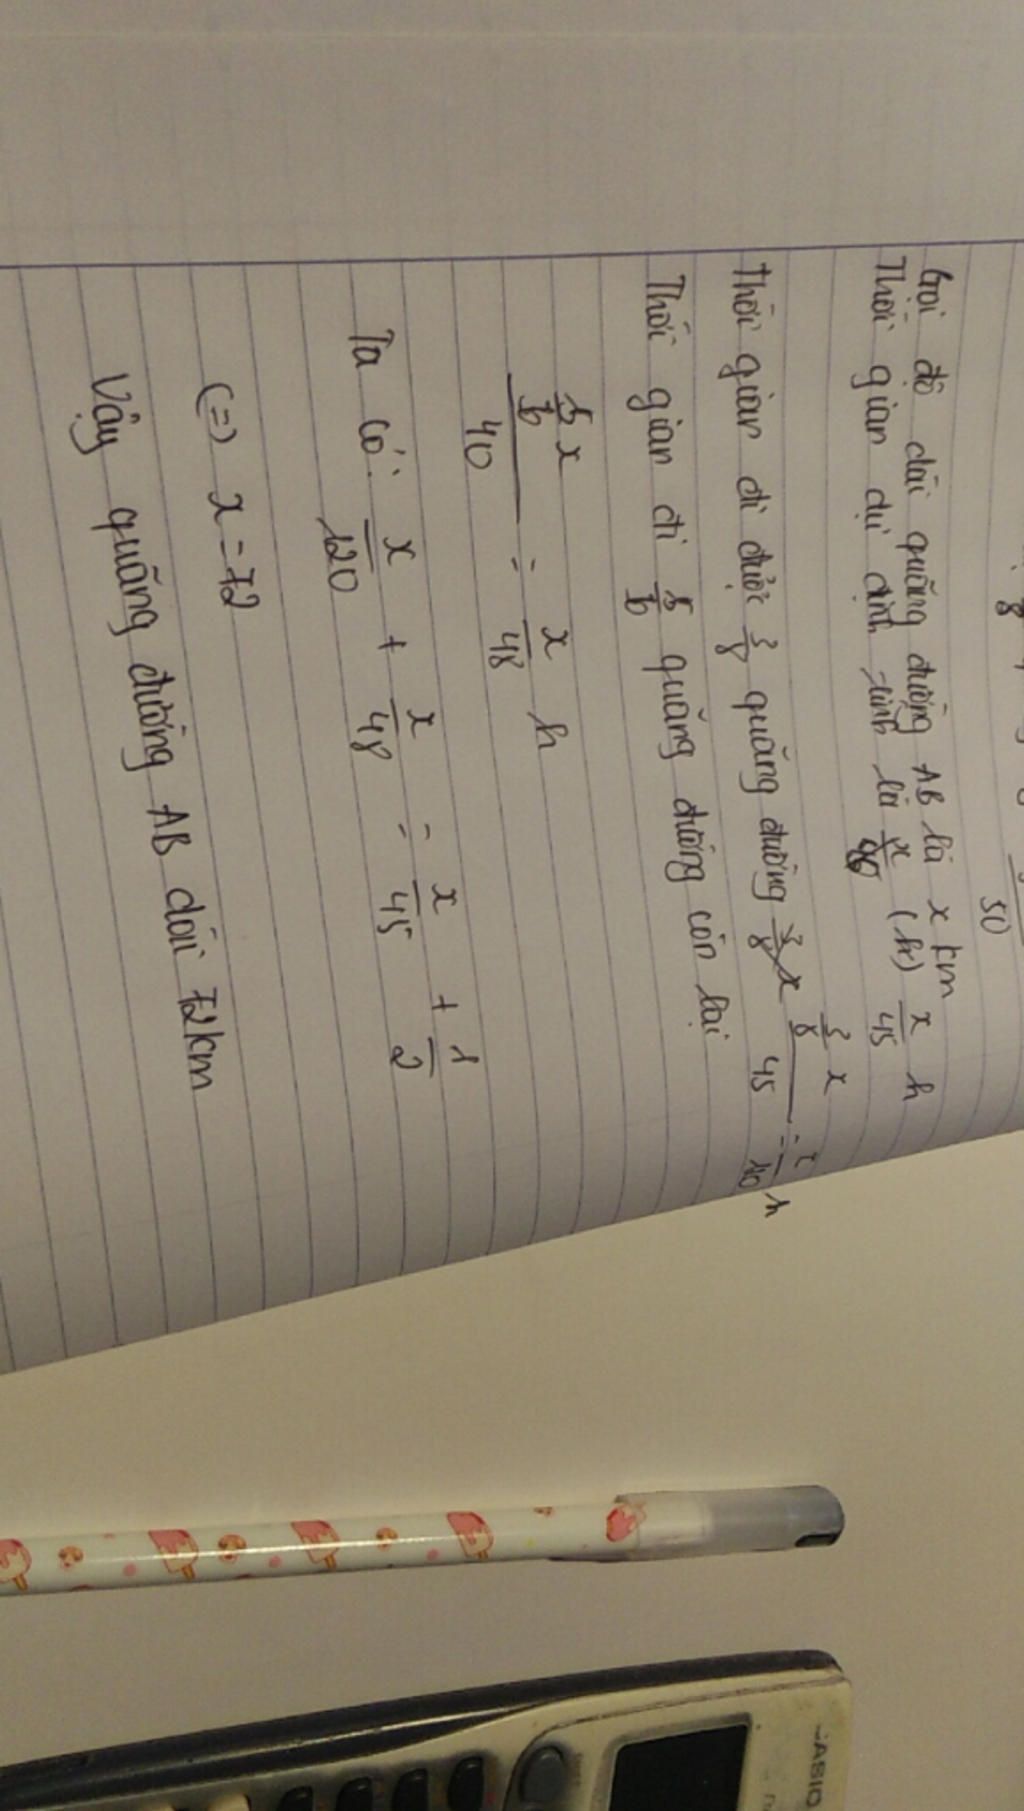 50
Gọi độ dài quãng đường AB là x km
Thời gian dự định là x/45 h
Thời gian đi được quãng đường 3/8 x / 45 = x/120 h
Thời gian đi quãng đường còn lại
x / 40 = x/48 h
Ta có: x/120 + x/48 = x/45 + 1/2
(=) x = 72
Vậy quãng đường AB dài 72km
CASIO